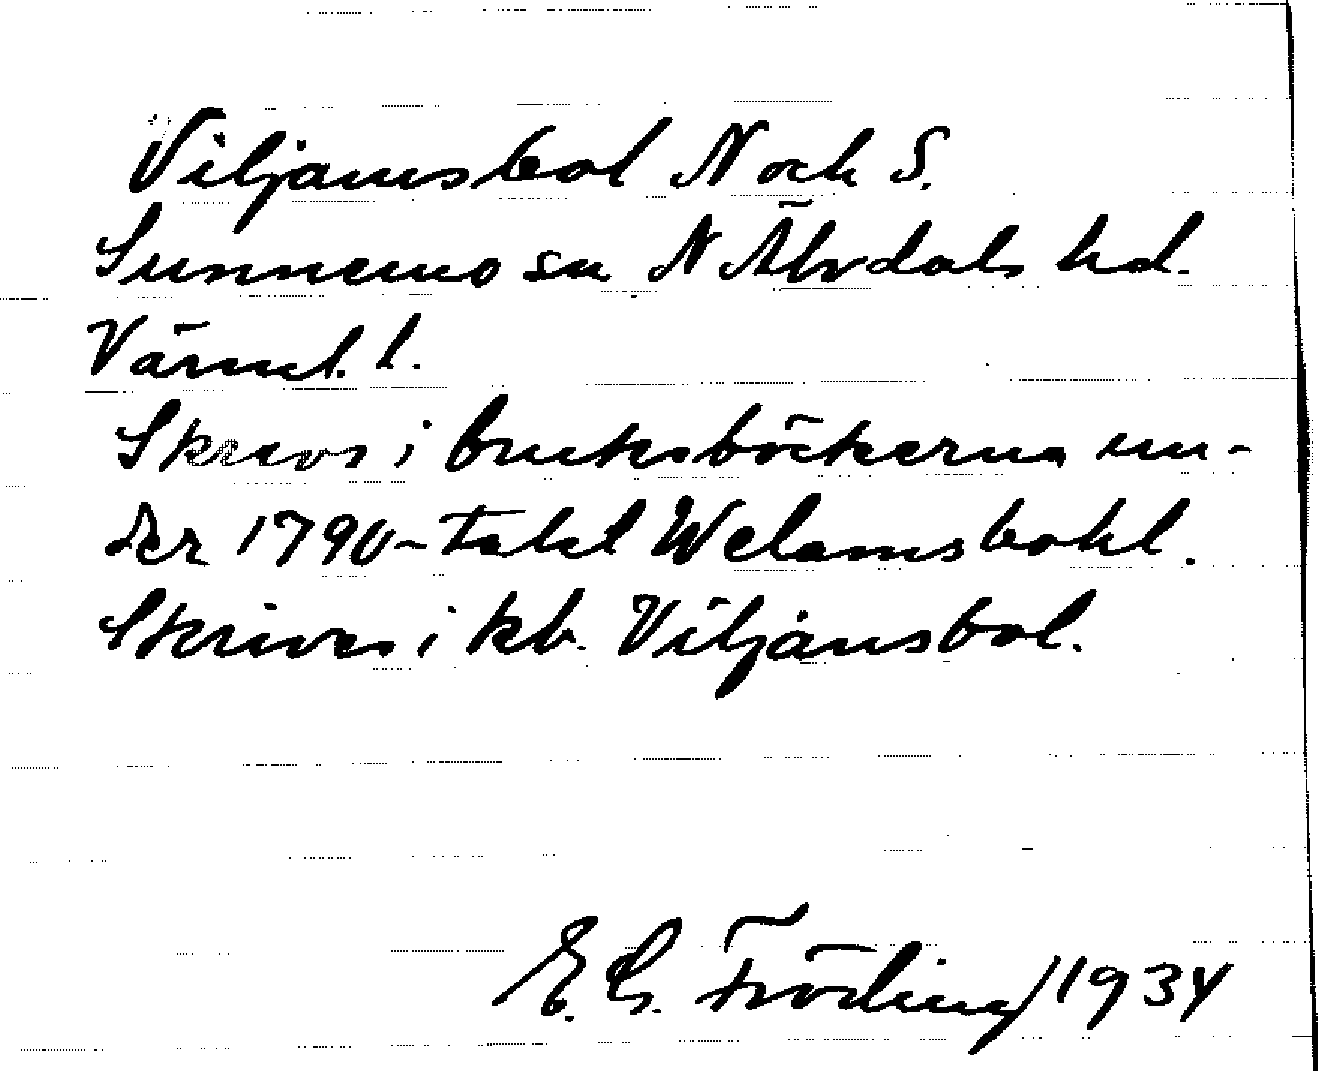 Viljamsbol N och S.
Sunnemo sn N Älvdals hd.
Värml. l.
Skrevs i bruksböckerna un-
der 1790-talet Welamsbohl.
Skrives i kb. Viljansbol.
E. G. Fröding 1934